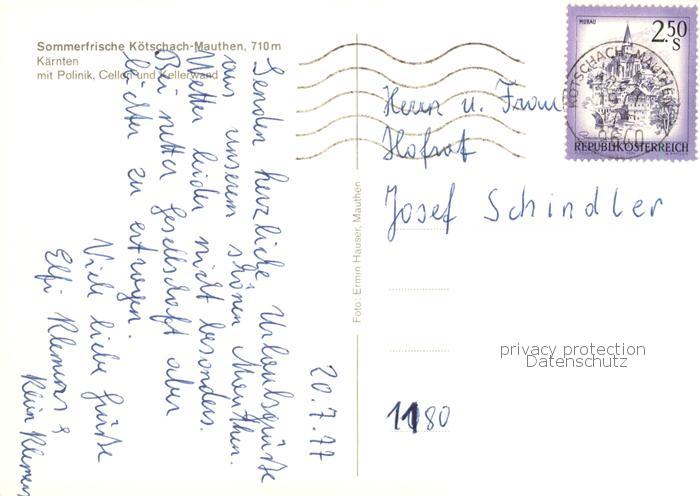 Sommerfrische Kötschach-Mauthen, 710 m
Kärnten
mit Polinik, Cellon und Kellerwand
20.7.77
Senden herzliche Urlaubsgrüße
aus unserem schönen Mauthen.
Wetter leider nicht besonders.
Bei netter Gesellschaft aber
leichter zu ertragen.
Viele liebe Grüße
Elfi Klemens &
Klein Klemens
Foto: Ermin Hauser, Mauthen
MURAU
2.50
S
REPUBLIK ÖSTERREICH
KÖTSCHACH-MAUTHEN
9640
Herrn u. Frau
Hofrat
Josef Schindler
1180
privacy protection
Datenschutz